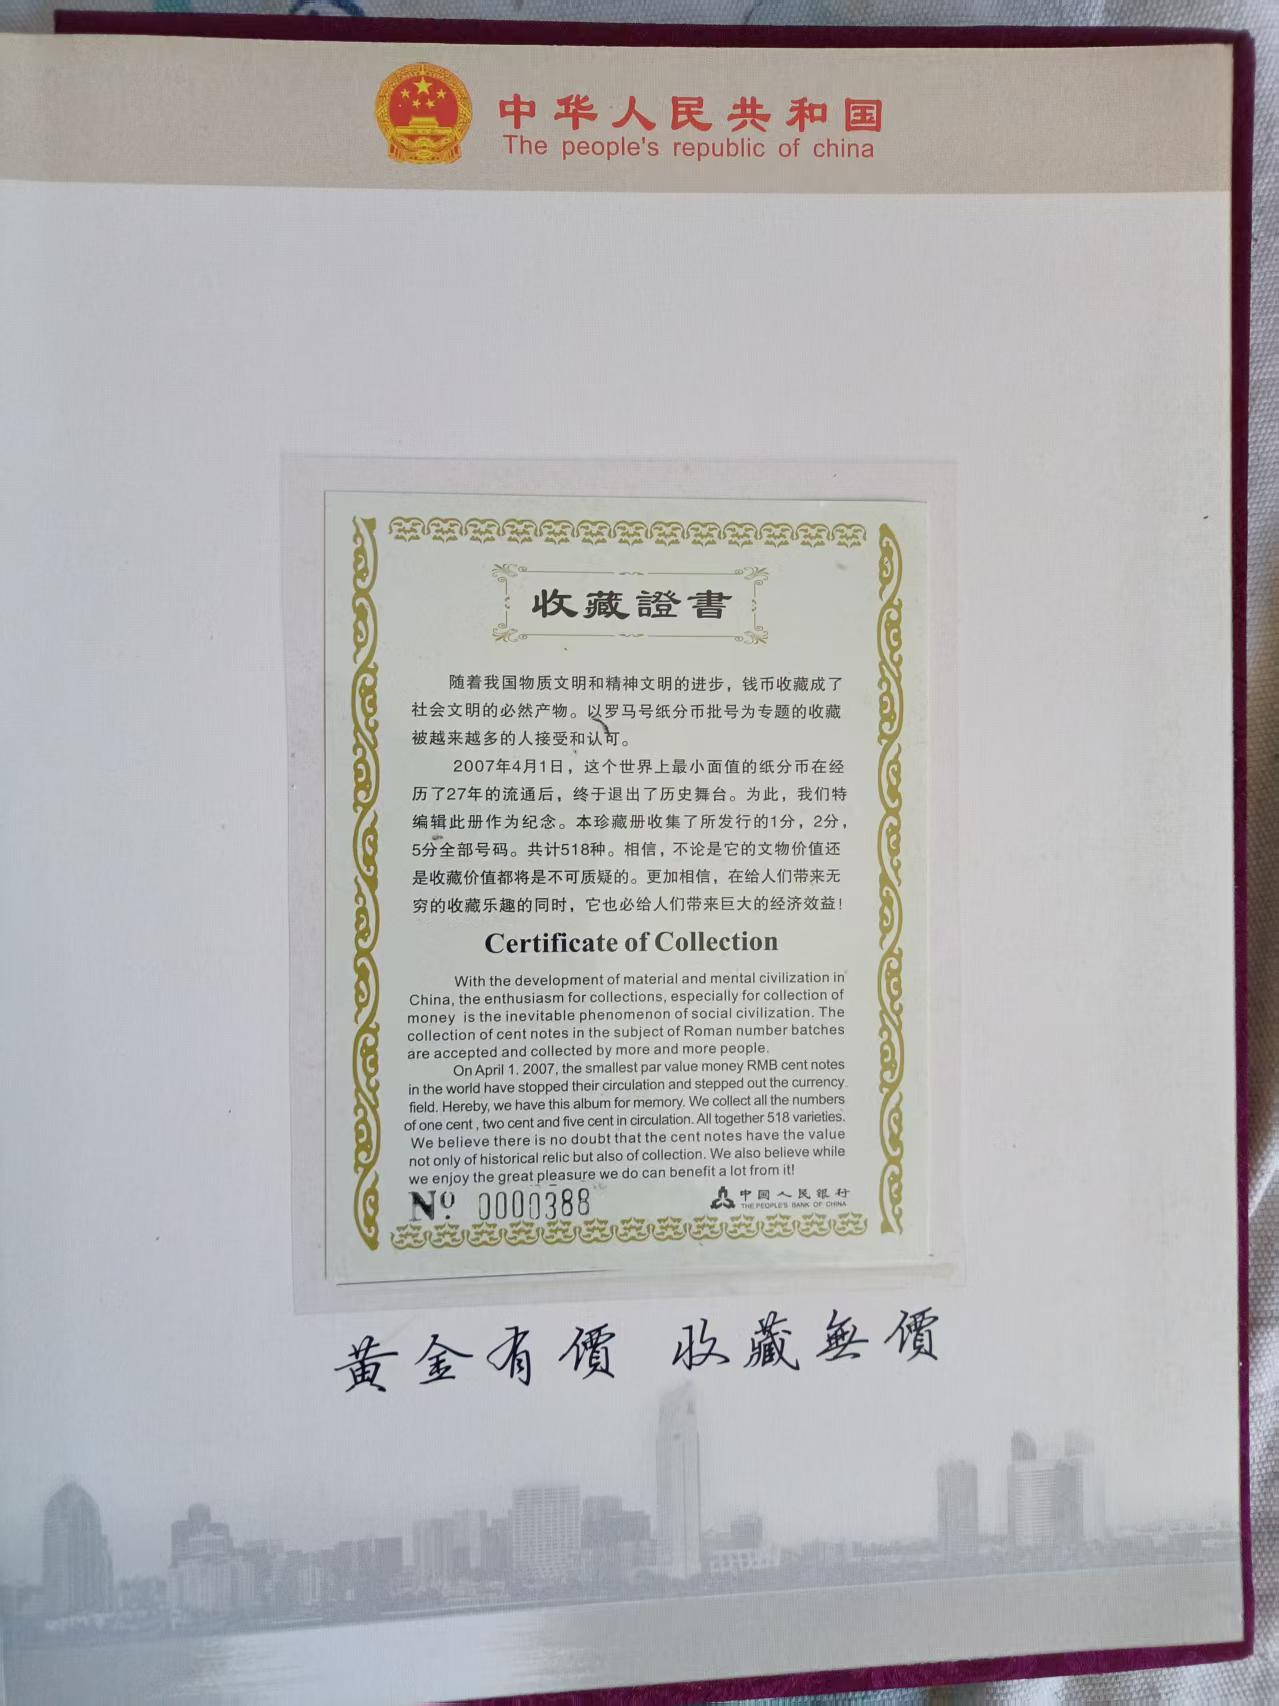 中华人民共和国
The people's republic of china
收藏證書
随着我国物质文明和精神文明的进步，钱币收藏成了
社会文明的必然产物。以罗马号纸分币批号为专题的收藏
被越来越多的人接受和认可。
2007年4月1日，这个世界上最小面值的纸分币在经
历了27年的流通后，终于退出了历史舞台。为此，我们特
编辑此册作为纪念。本珍藏册收集了所发行的1分，2分，
5分全部号码。共计518种。相信，不论是它的文物价值还
是收藏价值都将是不可质疑的。更加相信，在给人们带来无
穷的收藏乐趣的同时，它也必给人们带来巨大的经济效益！
Certificate of Collection
With the development of material and mental civilization in
China, the enthusiasm for collections, especially for collection of
money is the inevitable phenomenon of social civilization. The
collection of cent notes in the subject of Roman number batches
are accepted and collected by more and more people.
On April 1. 2007, the smallest par value money RMB cent notes
in the world have stopped their circulation and stepped out the currency
field. Hereby, we have this album for memory. We collect all the numbers
of one cent , two cent and five cent in circulation. All together 518 varieties.
We believe there is no doubt that the cent notes have the value
not only of historical relic but also of collection. We also believe while
we enjoy the great pleasure we do can benefit a lot from it!
Nº. 0000388
中国人民银行
THE PEOPLE'S BANK OF CHINA
黄金有價 收藏無價